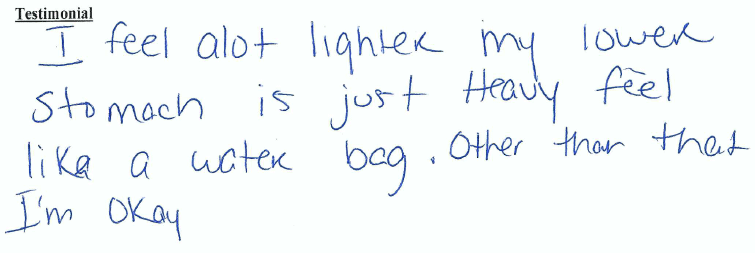 Testimonial
I feel alot lighter my lower
stomach is just Heavy feel
like a water bag. Other than that
I'm okay